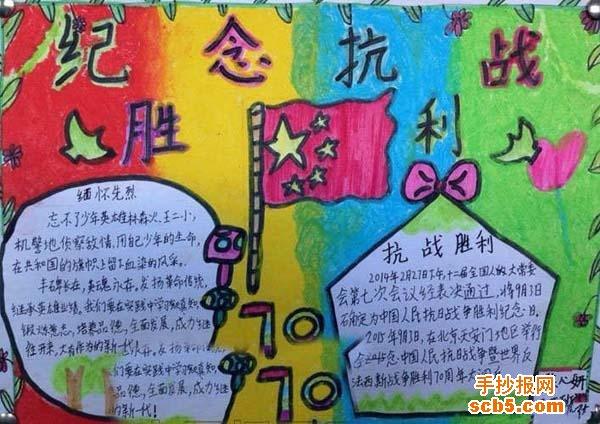 纪念抗战
胜利
缅怀先烈
忘不了少年英雄林森火、王二小,
机警地侦察敌情,用自己少年的生命,
在共和国的旗帜上留下血染的风采。
丰碑长在,英魂永存,发扬革命传统,
继承英雄业绩。我们要在实践中学习求真知
锻炼意志,培养品德,全面发展,成为继
往开来,大有作为的新一代
发扬革命
们要在实践中学习求真知
品德,全面发展,成为继
的新一代!
70
70
抗战胜利
2014年2月27日下午,十二届全国人大常委
会第七次会议经表决通过,将9月3
日确定为中国人民抗日战争胜利纪念日.
2015年9月3日,在北京天安门地区举行
念中国人民抗日战争暨世界反
法西斯战争胜利70周年大
手抄报网
scb5.com